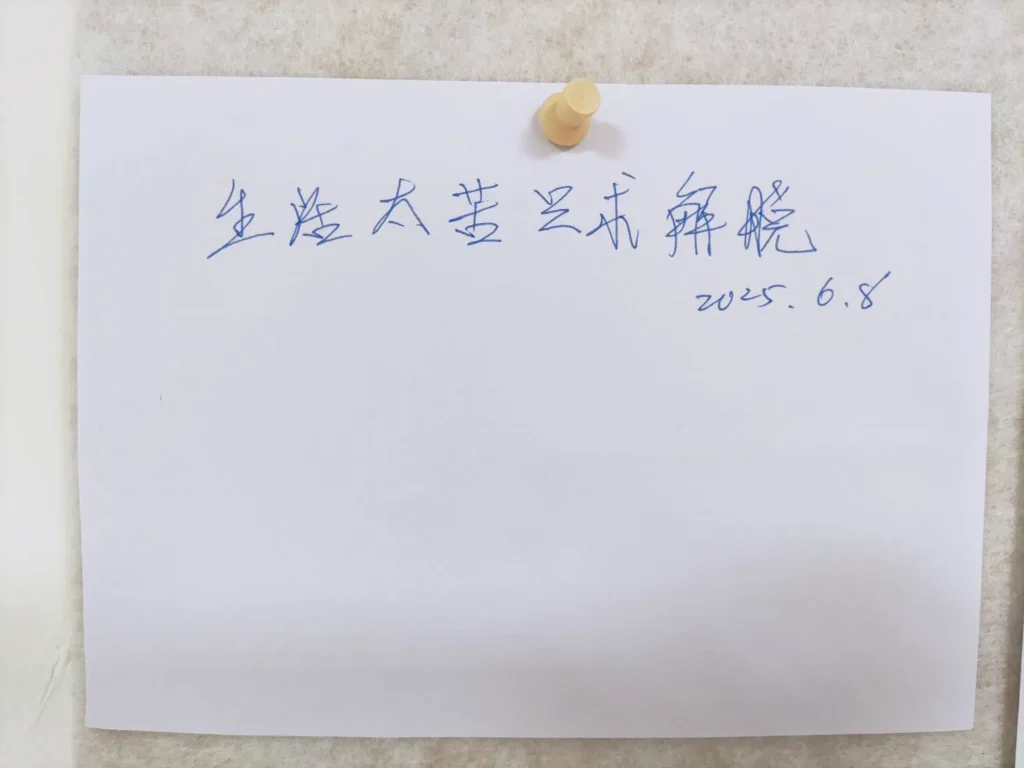 生太苦只求解
2025.6.8